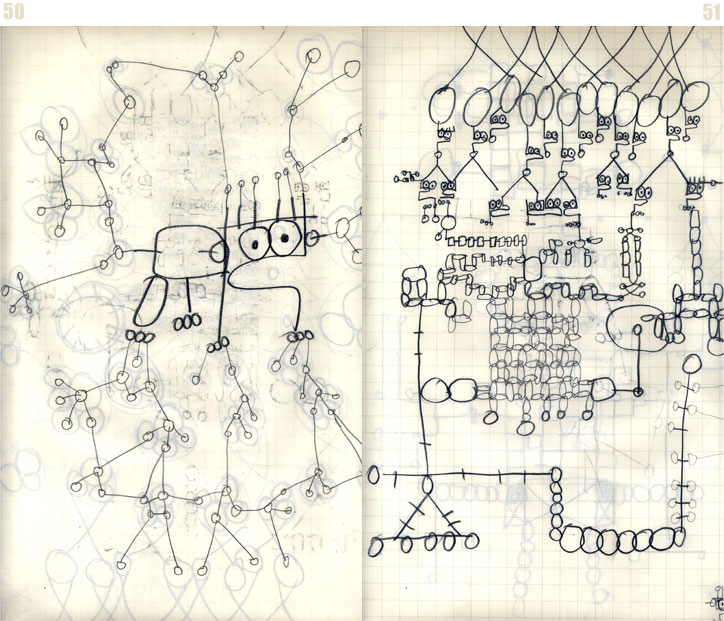 50
51